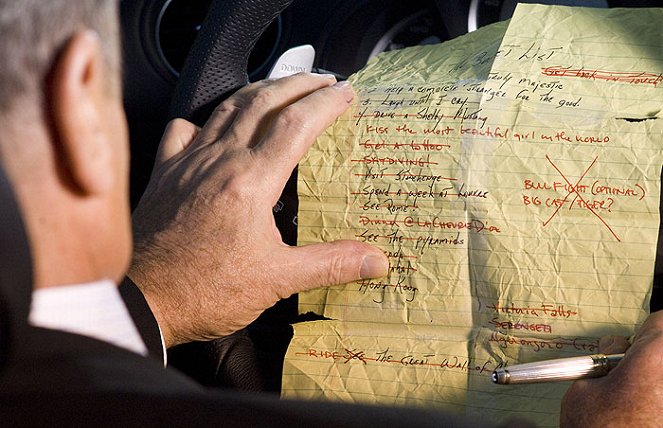 The Bucket List
truly majestic
Get back in touch
2. Help a complete stranger for the good
3. Laugh until I cry
4. Drive a Shelby Mustang
Kiss the most beautiful girl in the world
Get a tattoo
SKYDIVING!
Visit Stonehenge
Spend a week at Louvre
See Rome!
Dinner @ La Chevre D'or
See the pyramids
Hong Kong
BULL FIGHT (OPTIONAL)
BIG CAT/TIGER?
Victoria Falls
SERENGETI
Ngorongoro
RIDE See THE Great Wall of
DOWN